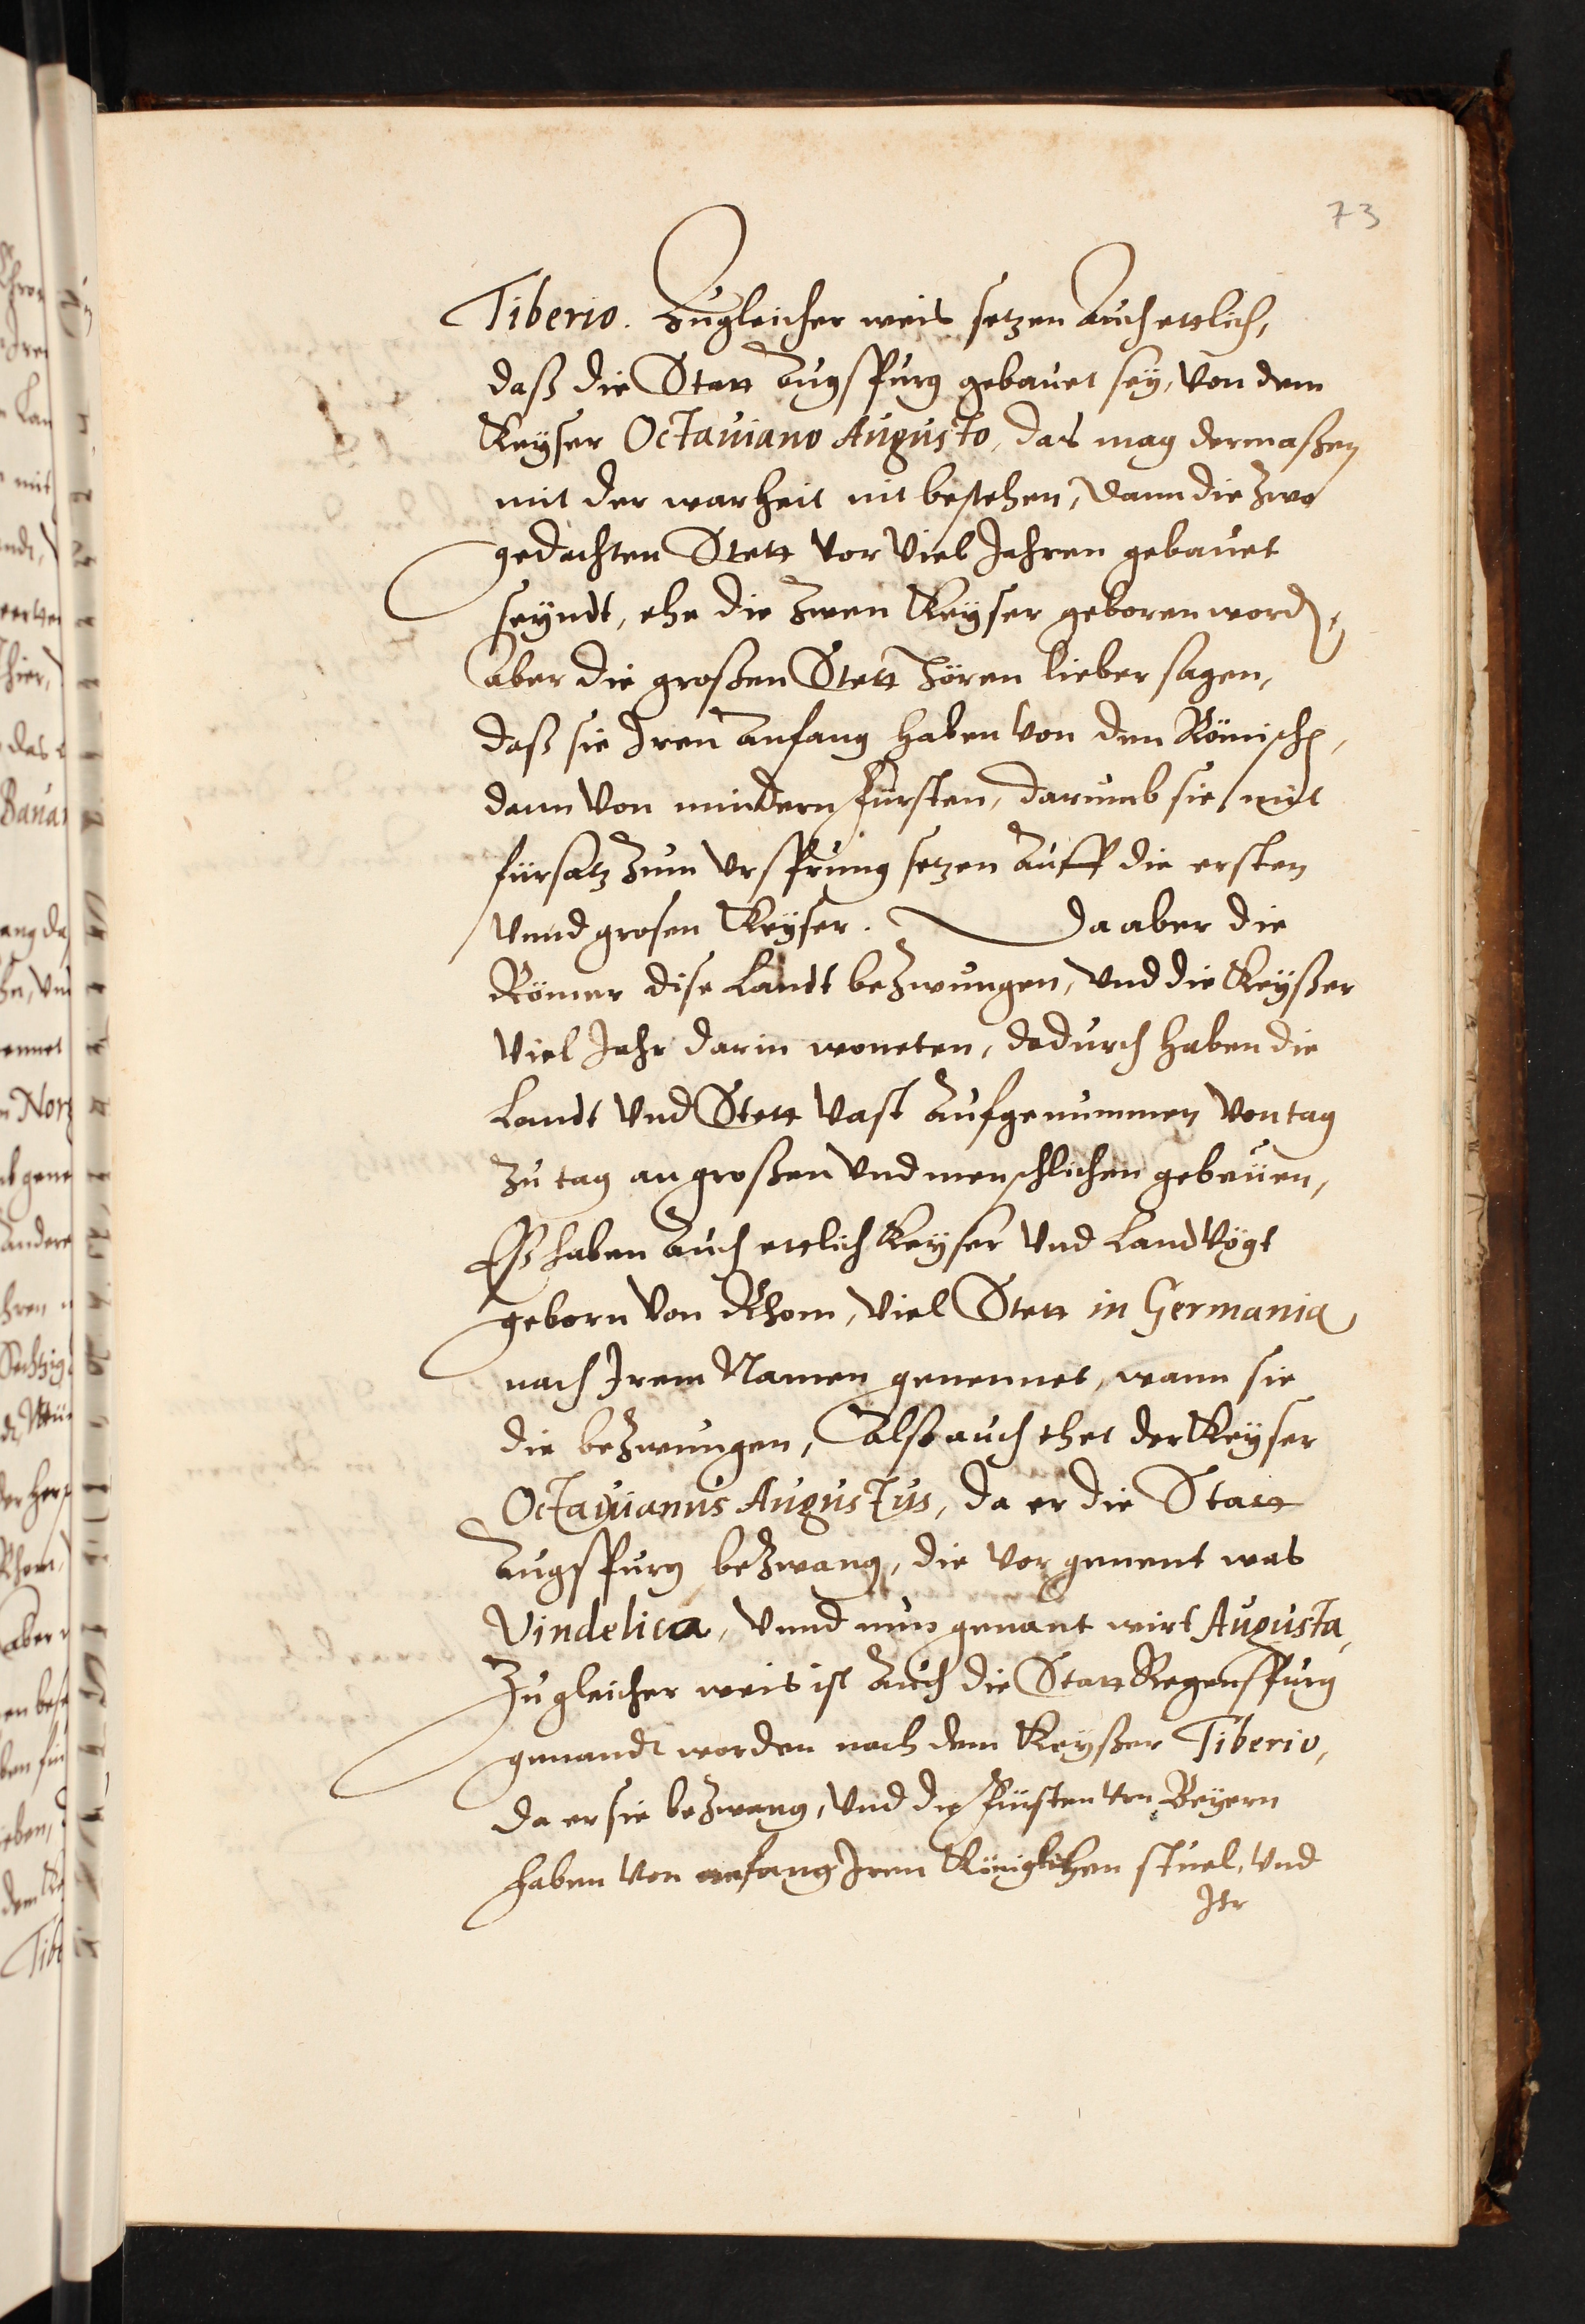 73
Tiberio. Zugleicher weis setzen Auch ettlich,
daß die Statt Augspurg gebauet sey, von dem
Keyser Octauiano Augusto, das mag dermaßen
mit der warheit nit bestehen, dann die zwo
gedachten Stett vor viel Jahren gebauet
seyndt, ehe die zwen Keyser geboren word,
Aber die großen Stett hören lieber sagen,
daß sie Iren Anfang haben von den Römisch,
dann von mindern fürsten, darumb sie mit
fürsatz zum Ursprung setzen Auff die ersten
vnnd grosen Keyser. Da aber die
Römer dise Landt bezwungen, vnd die Keyßer
viel Jahr darin woneten, dadurch haben die
Landt vnd Stett vast Aufgenummen von tag
zu tag an großen vnd menschlichen gebeuen,
Eß haben Auch ettlich Keyser vnd Landvögt
geborn von Rhom, viel Stett in Germania
nach Irem Namen genennet, wann sie
die bezwungen, Alß auch thet der Keyser
Octauianus Augustus, da er die Statt
Augspurg bezwang, die vor genent was
Vindelica, vnnd nun genant wirt Augusta,
Zu gleicher weis ist Auch die Statt Regenspurg
genandt worden nach dem Keyßer Tiberio,
da er sie bezwang, vnd die fürsten von Beyern
haben von anfang Iren Königlichen stuel, vnd
Itr